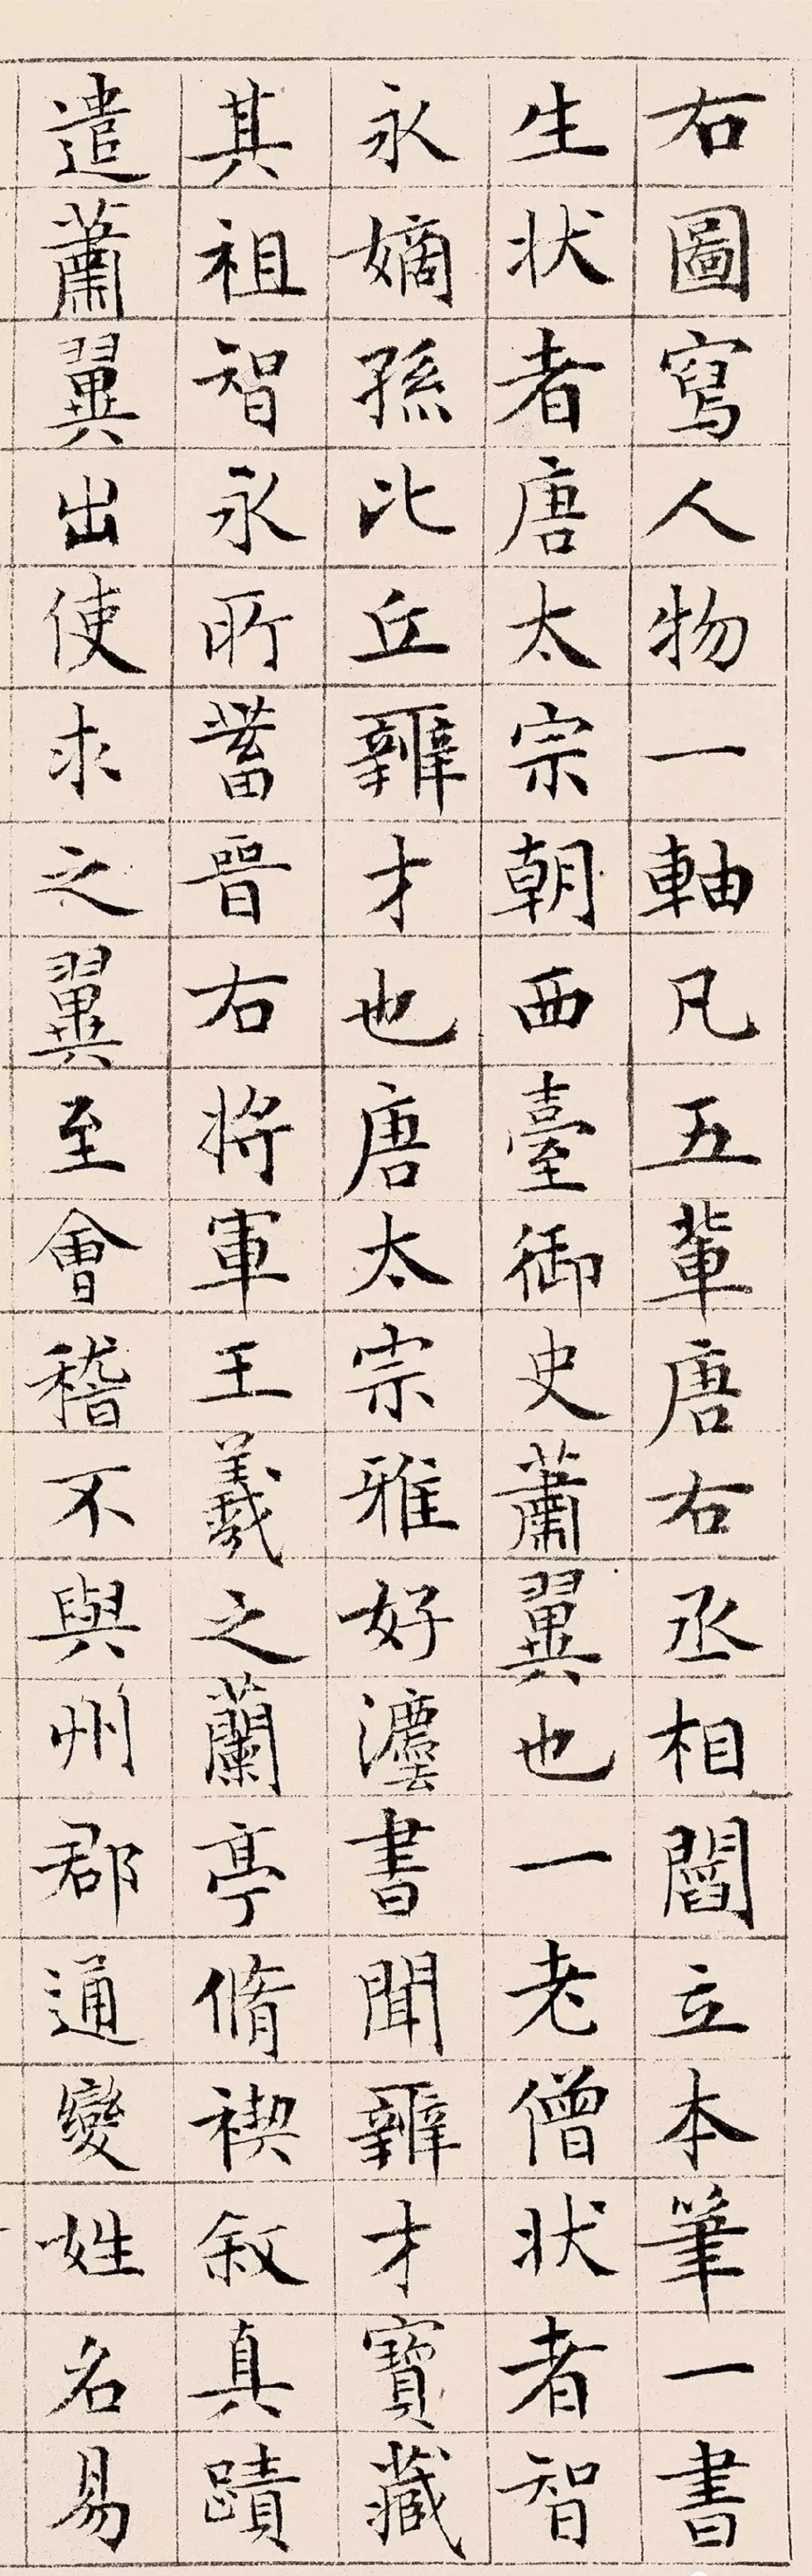 右圖寫人物一軸凡五輩唐右丞相閻立本筆一書
生狀者唐太宗朝西臺御史蕭翼也一老僧狀者智
永嫡孫比丘辯才也唐太宗雅好灋書聞辯才寶藏
其祖智永所蓄晉右將軍王羲之蘭亭脩禊叙真蹟
遣蕭翼出使求之翼至會稽不與州郡通變姓名易